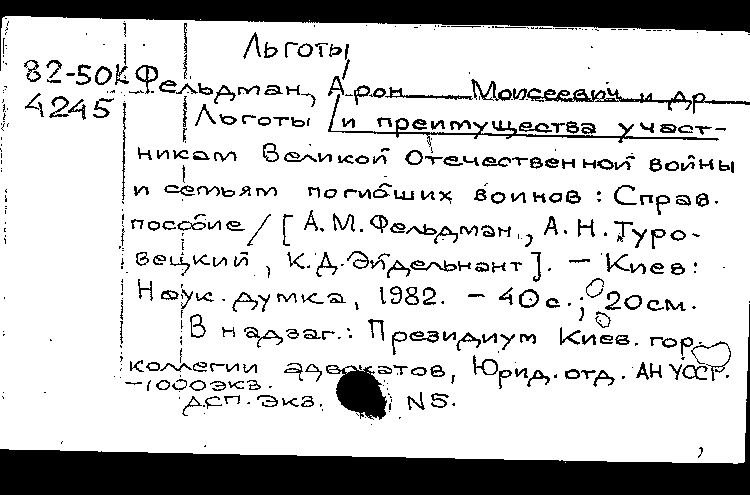 Льготы
82-50К Фельдман, Арон Моисеевич и др
4245 Льготы и преимущества участ-
никам Великой Отечественной войны
и семьям погибших воинов : Справ.
пособие / [ А. М. Фельдман, А. Н. Туро-
вецкий, К. Д. Эйдельнант ]. – Киев :
Наук. думка, 1982. – 40 с. ; 20 см.
В надзаг.: Президиум Киев. гор.
коллегии адвокатов, Юрид. отд. АН УССР.
– 1000 экз.
ДСП. Экз. N 5.